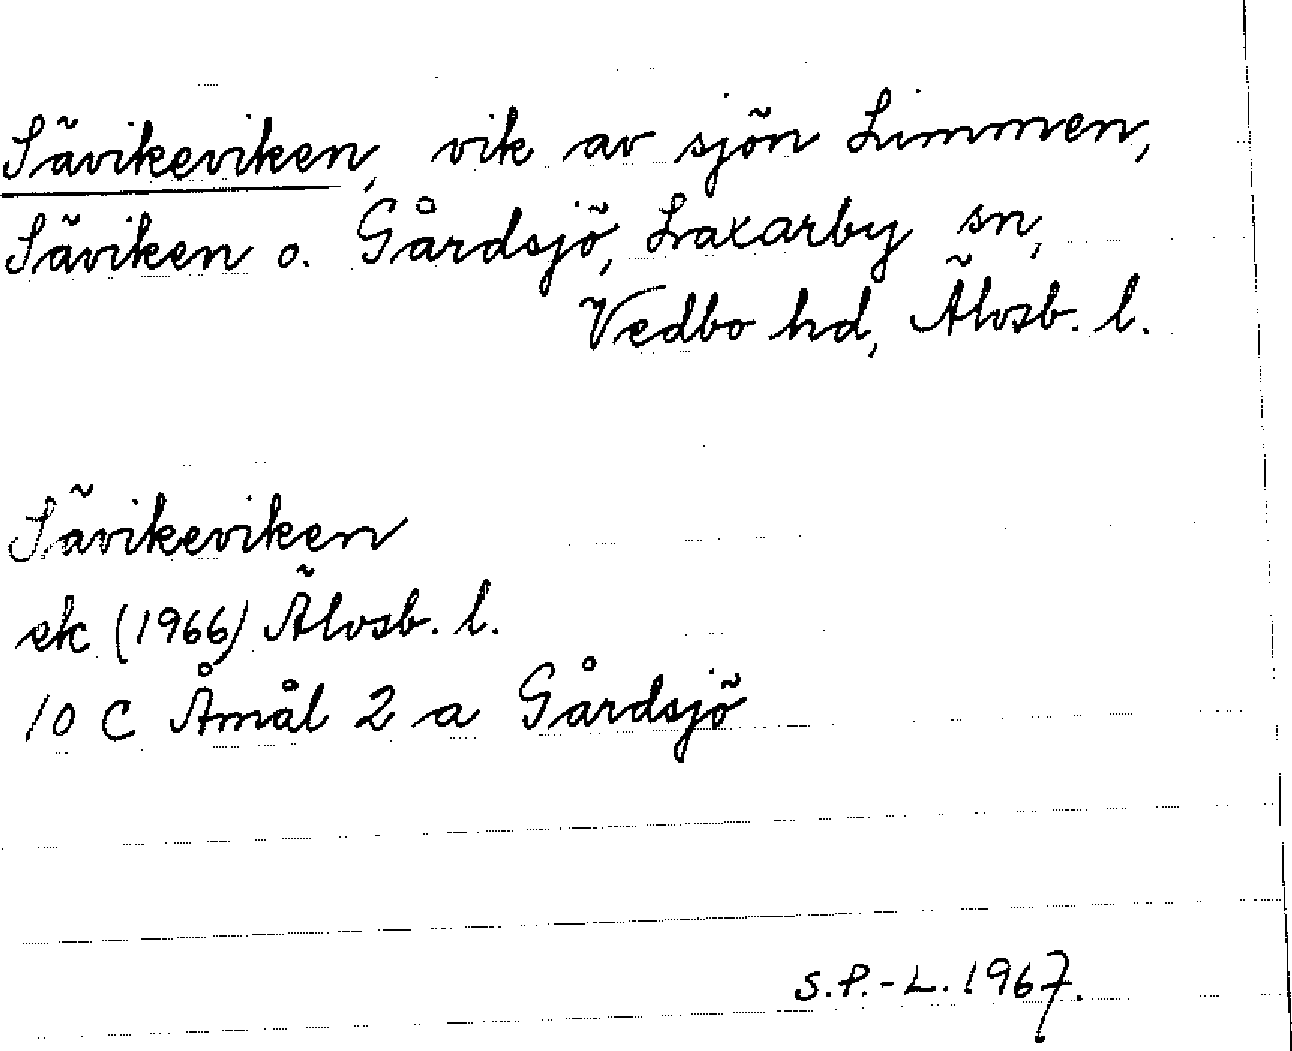 Sävikeviken, vik av sjön Limmen,
Säviken o. Gårdsjö, Laxarby sn,
Vedbo hd, Älvsb. l.
Sävikeviken
ek (1966) Älvsb. l.
10 C Åmål 2 a Gårdsjö
S.P.-L. 1967.